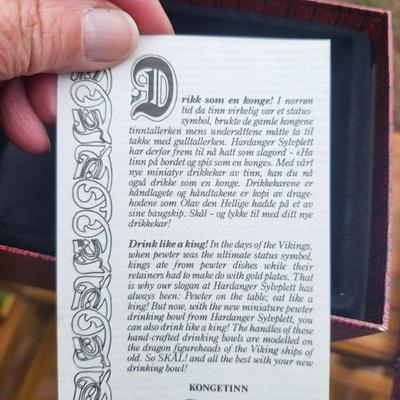 Drikk som en konge! I norrøn
tid da tinn virkelig var et status-
symbol, brukte de gamle kongene
tinntallerken mens undersåttene måtte ta til
takke med gulltallerken. Hardanger Sylvplett
har derfor frem til nå hatt som slagord - «Ha
tinn på bordet og spis som en konge». Med vårt
nye miniatyr drikkekar av tinn, kan du nå
også drikke som en konge. Drikkekarene er
håndlagete og håndtakene er kopi av drage-
hodene som Olav den Hellige hadde på et av
sine baugskip. Skål - og lykke til med ditt nye
drikkekar!
Drink like a king! In the days of the Vikings,
when pewter was the ultimate status symbol,
kings ate from pewter dishes while their
retainers had to make do with gold plates. That
is why our slogan at Hardanger Sylvplett has
always been: Pewter on the table; eat like a
king! But now, with the new miniature pewter
drinking bowl from Hardanger Sylvplett, you
can also drink like a king! The handles of these
hand-crafted drinking bowls are modelled on
the dragon figureheads of the Viking ships of
old. So SKÅL! and all the best with your new
drinking bowl!
KONGETINN